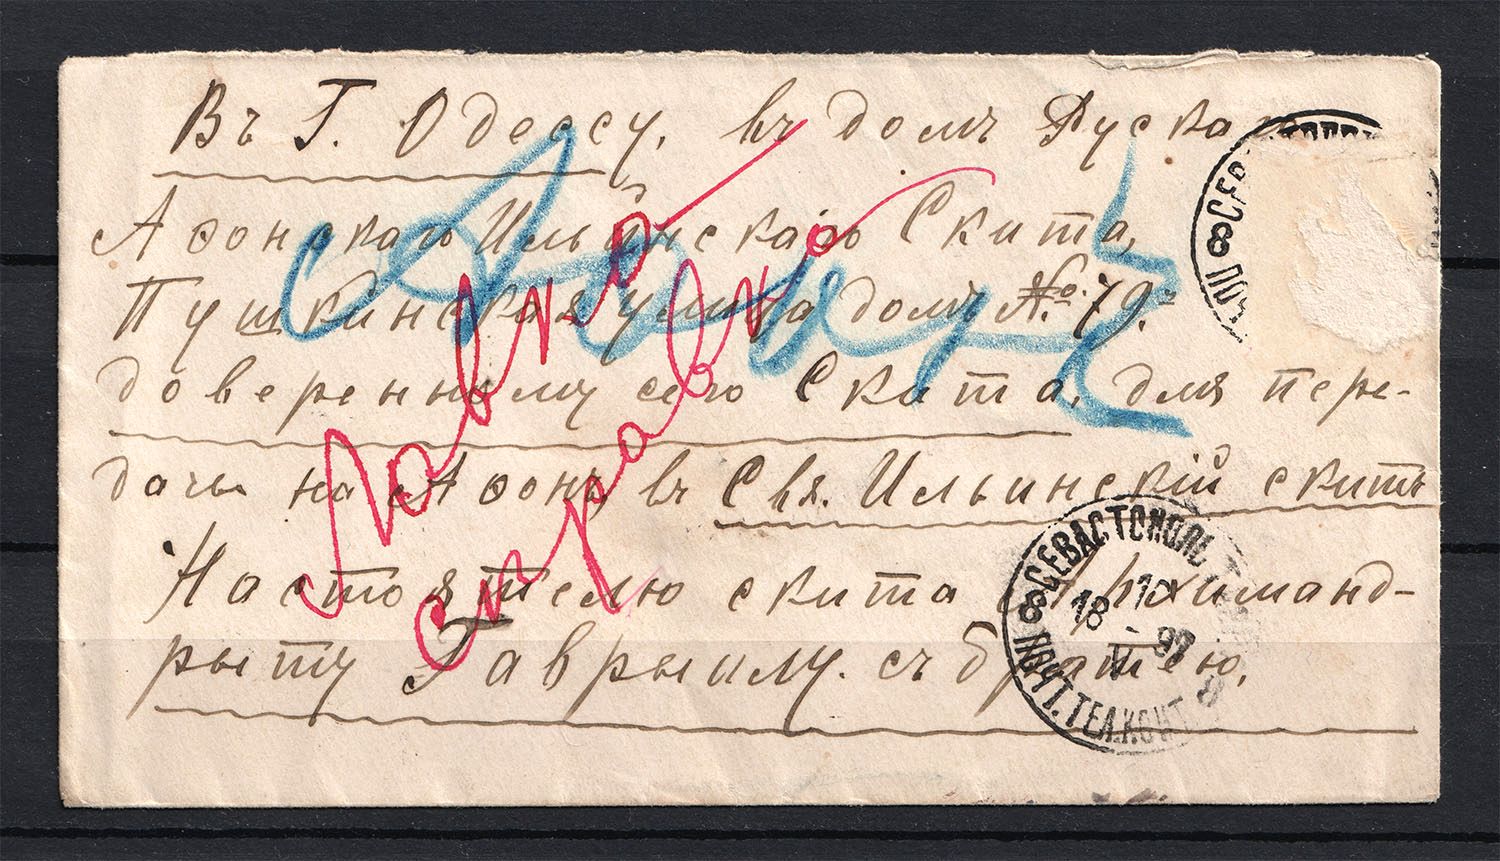 Въ Г. Одессу, въ домъ Руска
Аѳонскаго Ильинскаго Скита,
Пушкинская улица домъ №. 79.
довереному сего Скита, для пере-
дачы на Аѳонъ въ Свя. Ильинскій скитъ
Настоятелю скита Архиманд-
рыту Гаврыилу. съ братею.
справ
СЕВАСТОПОЛЬ
ПОЧТ. ТЕЛ. КОНТ.
18 V 97
8
СЕВ
ПОЧ
8